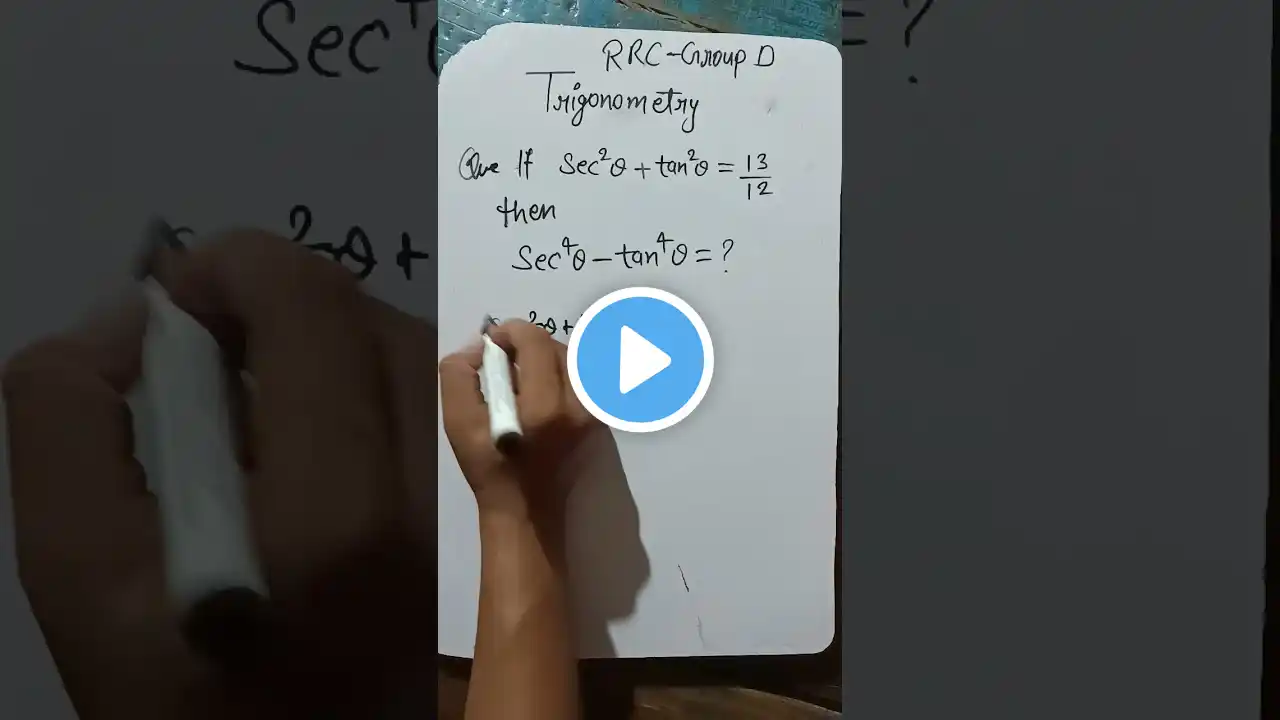 RRC-Group D
Trigonometry
Que If Sec²θ + tan²θ = 13/12
then
Sec⁴θ - tan⁴θ = ?
²θ +